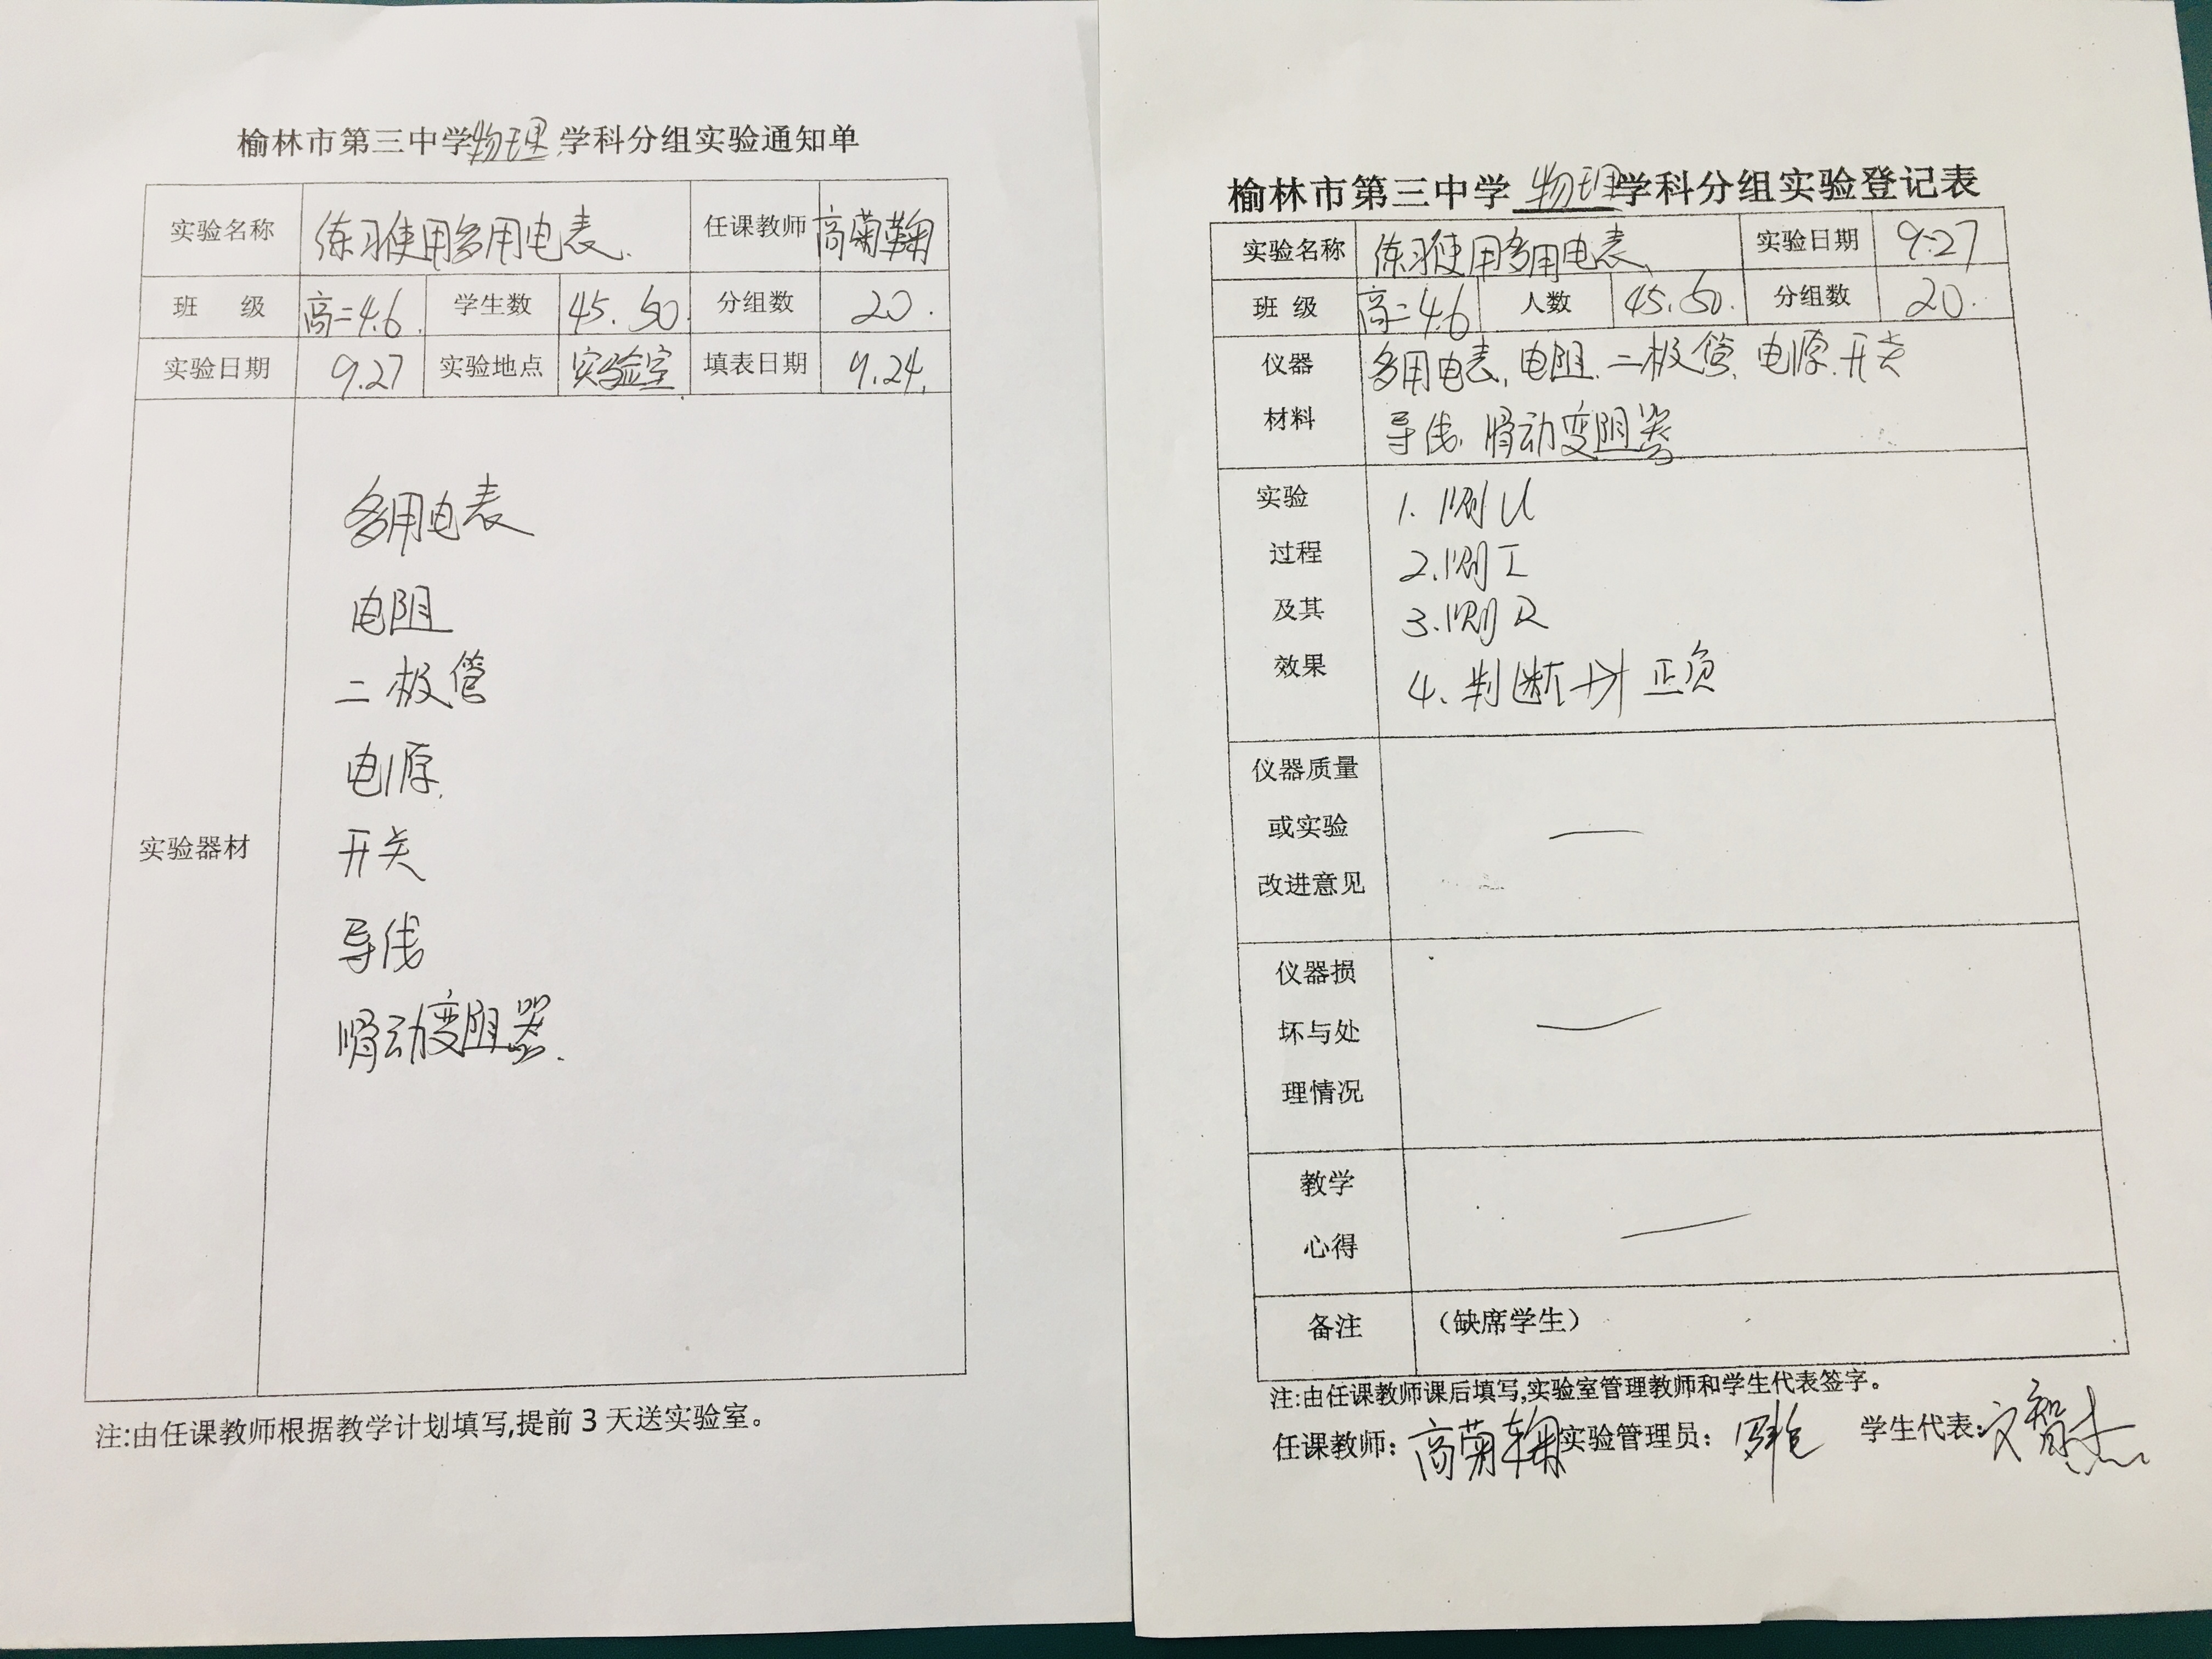 榆林市第三中学物理学科分组实验通知单
实验名称 练习使用多用电表. 任课教师 高菊鞠
班 级 高二4.6. 学生数 45. 50. 分组数 20.
实验日期 9.27 实验地点 实验室 填表日期 9.24.
实验器材
多用电表
电阻
二极管
电源.
开关
导线
滑动变阻器.
注:由任课教师根据教学计划填写,提前3天送实验室。
榆林市第三中学物理学科分组实验登记表
实验名称 练习使用多用电表、 实验日期 9.27
班 级 高二4.6 人数 45. 50. 分组数 20.
仪器 多用电表. 电阻. 二极管. 电源. 开关
材料 导线. 滑动变阻器
实验 1. 测U
过程 2. 测I
及其 3. 测R
效果 4. 判断 正负
仪器质量
或实验 —
改进意见
仪器损
坏与处 —
理情况
教学
心得 —
备注 （缺席学生）
注:由任课教师课后填写,实验室管理教师和学生代表签字。
任课教师: 高菊鞠 实验管理员: 学生代表: 文智杰